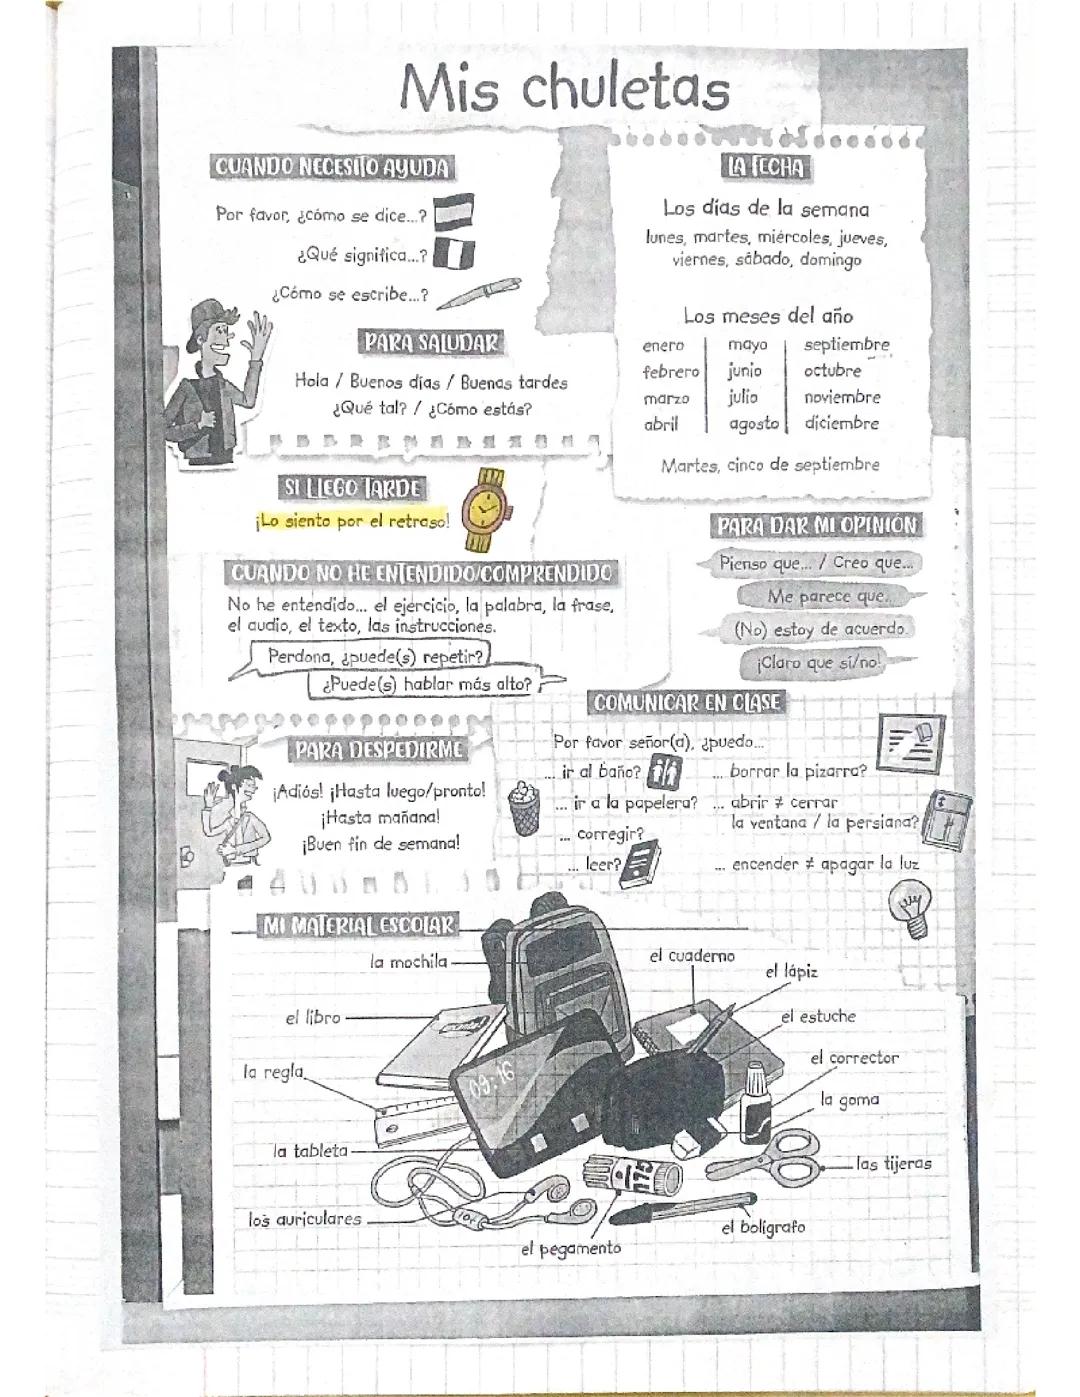 Mis chuletas
CUANDO NECESITO AYUDA
Por favor, ¿cómo se dice...?
¿Qué significa...?
¿Cómo se escribe...?
PARA SALUDAR
Hola / Buenos días / Buenas tardes
¿Qué tal? / ¿Cómo estás?
LA FECHA
Los días de la semana
lunes, martes, miércoles, jueves,
viernes, sábado, domingo
Los meses del año
enero mayo septiembre
febrero junio octubre
marzo julio noviembre
abril agosto diciembre
Martes, cinco de septiembre
SI LLEGO TARDE
¡Lo siento por el retraso!
CUANDO NO HE ENTENDIDO/COMPRENDIDO
No he entendido... el ejercicio, la palabra, la frase,
el audio, el texto, las instrucciones.
Perdona, ¿puede(s) repetir?
¿Puede(s) hablar más alto?
PARA DAR MI OPINIÓN
Pienso que... / Creo que...
Me parece que...
(No) estoy de acuerdo.
¡Claro que sí/no!
PARA DESPEDIRME
¡Adiós! ¡Hasta luego/pronto!
¡Hasta mañana!
¡Buen fin de semana!
COMUNICAR EN CLASE
Por favor señor(a), ¿puedo...
... ir al baño?
... ir a la papelera?
... corregir?
... leer?
... borrar la pizarra?
... abrir ≠ cerrar
la ventana / la persiana?
... encender ≠ apagar la luz
MI MATERIAL ESCOLAR
la mochila
el cuaderno
el lápiz
el libro
el estuche
la regla
09:16
el corrector
la goma
la tableta
las tijeras
los auriculares
el bolígrafo
el pegamento